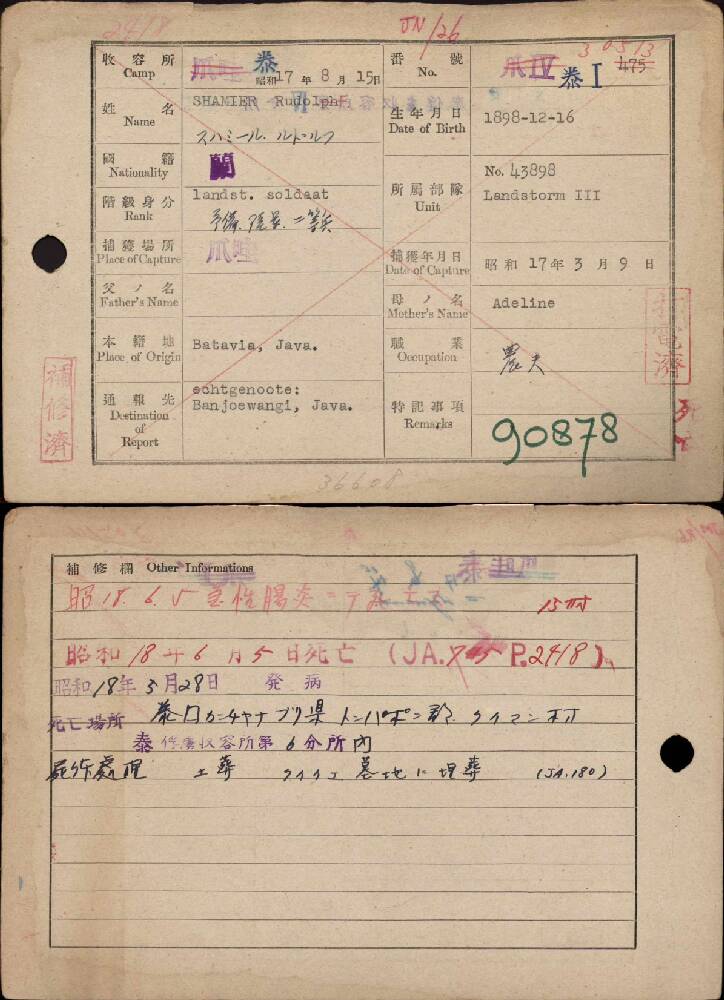 2418
JN/26
收容所 Camp 爪哇 泰 昭和17年8月15日
番號 No. 爪IV 泰I 3 0513 475
姓名 Name SHAMIER Rudolph
スハミール．ルドルフ
生年月日 Date of Birth 1898-12-16
國籍 Nationality 蘭
階級身分 Rank landst. soldaat
予備．二等兵
所屬部隊 Unit No. 43898
Landstorm III
捕獲場所 Place of Capture 爪哇
捕獲年月日 Date of Capture 昭和17年3月9日
父ノ名 Father's Name
母ノ名 Mother's Name Adeline
本籍地 Place of Origin Batavia, Java.
職業 Occupation 農夫
通報先 Destination of Report echtgenoote:
Banjoewangi, Java.
特記事項 Remarks 90878
補修濟
打電濟
死亡
36608
補修欄 Other Informations
昭18.6.5 急性腸炎ニテ死亡ス 15時
昭和18年6月5日死亡 (JA. P.2418)
昭和18年5月28日 発病
死亡場所 泰国カンチャナブリ県トンパポン郡．クイマン村
泰俘虜収容所第6分所内
屍体處理 土葬 墓地に埋葬 (JA.180)